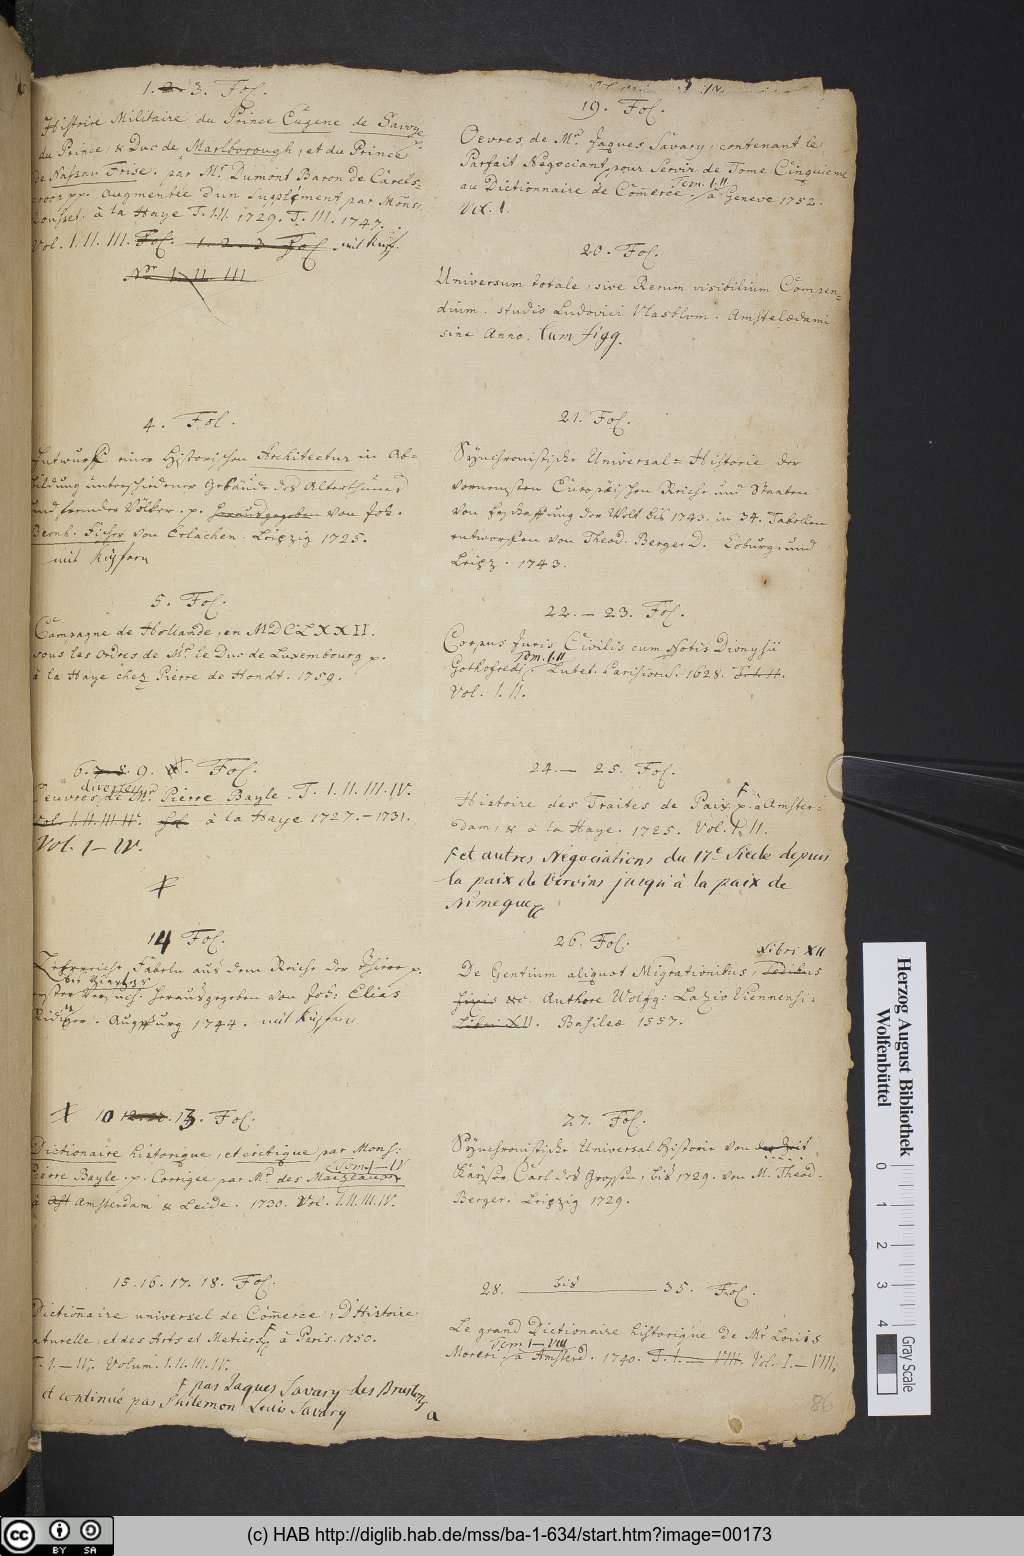 1. 2. 3. Fol.
Histoire Militaire du Prince Eugene de Savoye
du Prince, & Duc de Marlborough, et du Prince
de Nassau Frise. par Mr. Dumont Baron de Carels-
croon pp. Augmentée d'un Suplément par Mons.
Rousset. à la Haye T. I.II. 1729. T. III. 1747.
Vol. I. II. III. Fol. 1. 2. 3. Fol. mit Kupf.
Nr. I. II. III
4. Fol.
Entwurff einer Historischen Architectur in Ab-
bildung unterschiedener Gebäude des Alterthums
und fremder Völker. p. herausgegeben von Joh.
Bernh. Fischer von Erlachen. Leipzig 1725.
mit Kupfern
5. Fol.
Campagne de Hollande, en MDCLXXII.
sous les Ordres de Mr. le Duc de Luxembourg p.
à la Haye chez Pierre de Hondt. 1759.
6. 7. 8. 9. Fol.
diverses
Oeuvres de Mr. Pierre Bayle. T. I. II. III. IV.
Vol. I. II. III. IV. Fol. à la Haye 1727.-1731.
Vol. I-IV.
14 Fol.
Lehrreiche Fabeln aus dem Reiche der Thiere p.
herausgegeben von Joh: Elias
Ridinger. Augspurg 1744. mit Kupfern
10 13. Fol.
Dictionaire historique, et critique par Mons:
Tom. I-IV
Pierre Bayle. p. Corrigée par Mr. des Maizeaux.
à Amsterdam & Leide. 1730. Vol. I. II. III. IV.
15. 16. 17. 18. Fol.
Dictionnaire universel de Comerce, D'Histoire
naturelle, et des Arts et Metiers à Paris. 1750.
T. I.-IV. Volum. I. II. III. IV.
F par Jaques Savary des Bruslons
et continué par Philemon Louis Savary
a
19. Fol.
Oevres de Mr. Jaques Savary, contenant le
Parfait Negociant, pour Servir de Tome Cinquieme
Tom. I. II
au Dictionnaire de Comerce. à Geneve 1752.
Vol. I.
20. Fol.
Universum totale, sive Rerum visibilium Compen-
dium. studio Ludovici Vlasblom. Amstelædami
sine Anno. Cum figg.
21. Fol.
Synchronistische Universal-Historie der
vornemsten Europäischen Reiche und Staaten
von Erschaffung der Welt bis 1743. in 34. Tabellen
entworffen von Theod. Berger D. Coburg, und
Leipz. 1743.
22. - 23. Fol.
Corpus Juris Civilis cum Notis Dionysii
Tom. I. II
Gothofredi. Lutet. Parisiorū. 1628.
Vol. I. II.
24. - 25. Fol.
F
Histoire des Traites de Paix. p. à Amster-
dam, & à la Haye. 1725. Vol. I. II.
F et autres Negociations du 17e Siecle depuis
la paix de Vervins jusqu'à la paix de
Nimegue
26. Fol.
Libri XII
De Gentium aliquot Migrationibus, Sedibus
fixis &c. Authore Wolfg: Lazio Viennensi.
Libri XII. Basileæ 1557.
27. Fol.
Synchronistische Universal Historie von der Zeit
Käysers Carl des Grossen, bis 1729. von M. Theod.
Berger. Leipzig 1729.
28. bis 35. Fol.
Le grand Dictionnaire historique de Mr Louis
Tom. I-VIII
Moreri, à Amsterd. 1740. T. I. - VIII. Vol. I.-VIII.
86
Herzog August Bibliothek
Wolfenbüttel
0 1 2 3 4
Gray Scale
cc BY SA
(c) HAB http://diglib.hab.de/mss/ba-1-634/start.htm?image=00173